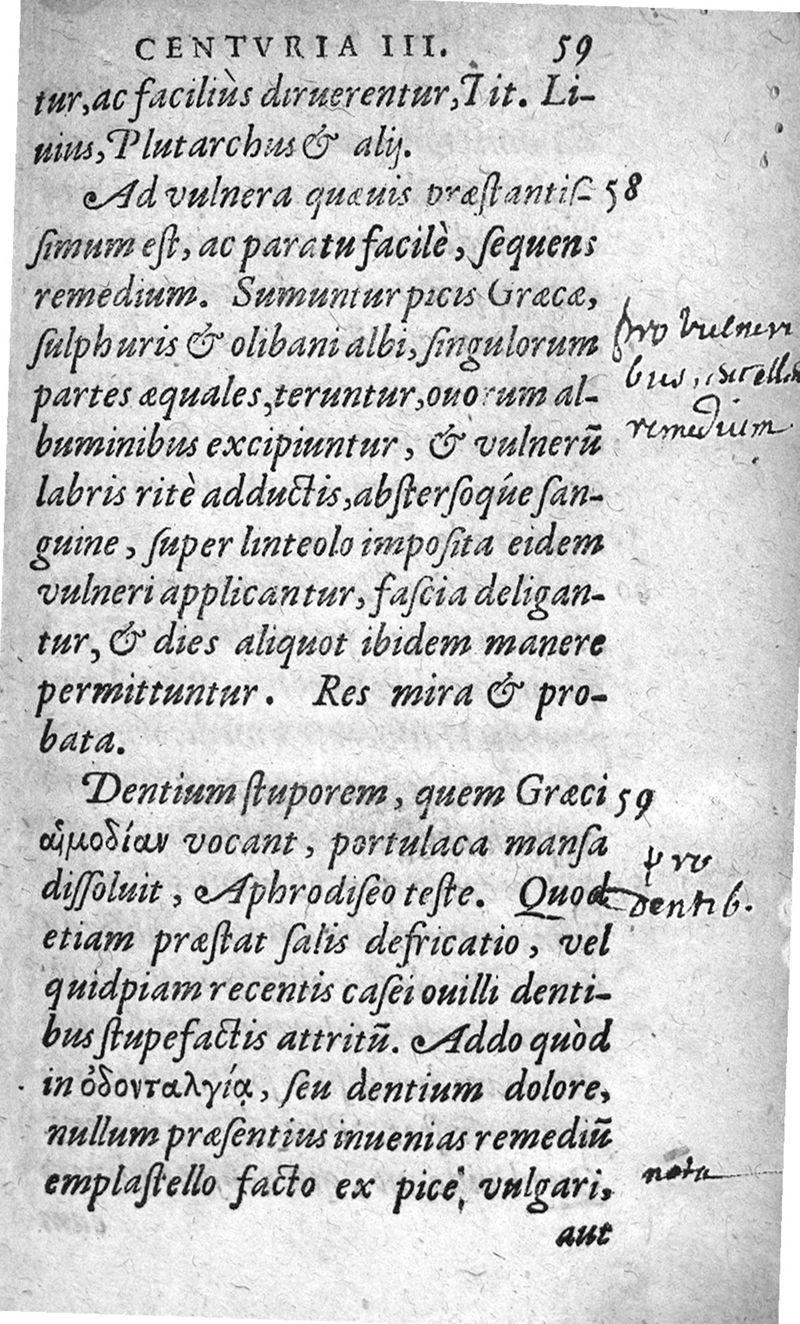 CENTVRIA III. 59
tur, ac faciliùs diruerentur, Tit. Li-
uius, Plutarchus & alij.
Ad vulnera quæuis præstantis- 58
simum est, ac paratu facilè, sequens
remedium. Sumuntur picis Græcæ,
sulphuris & olibani albi, singulorum
partes æquales, teruntur, ouorum al-
buminibus excipiuntur, & vulnerū
labris ritè adductis, abstersoq́ue san-
guine, super linteolo imposita eidem
vulneri applicantur, fascia deligan-
tur, & dies aliquot ibidem manere
permittuntur. Res mira & pro-
bata.
Dentium stuporem, quem Græci 59
αἱμοδίαν vocant, portulaca mansa
dissoluit, Aphrodiseo teste. Quod
etiam præstat salis defricatio, vel
quidpiam recentis casei ouilli denti-
bus stupefactis attritū. Addo quòd
in ὀδονταλγίᾳ, seu dentium dolore,
nullum præsentius inuenias remediū
emplastello facto ex pice vulgari,
aut
pro vulneri
bus
remedium
pro
dentib.
nota